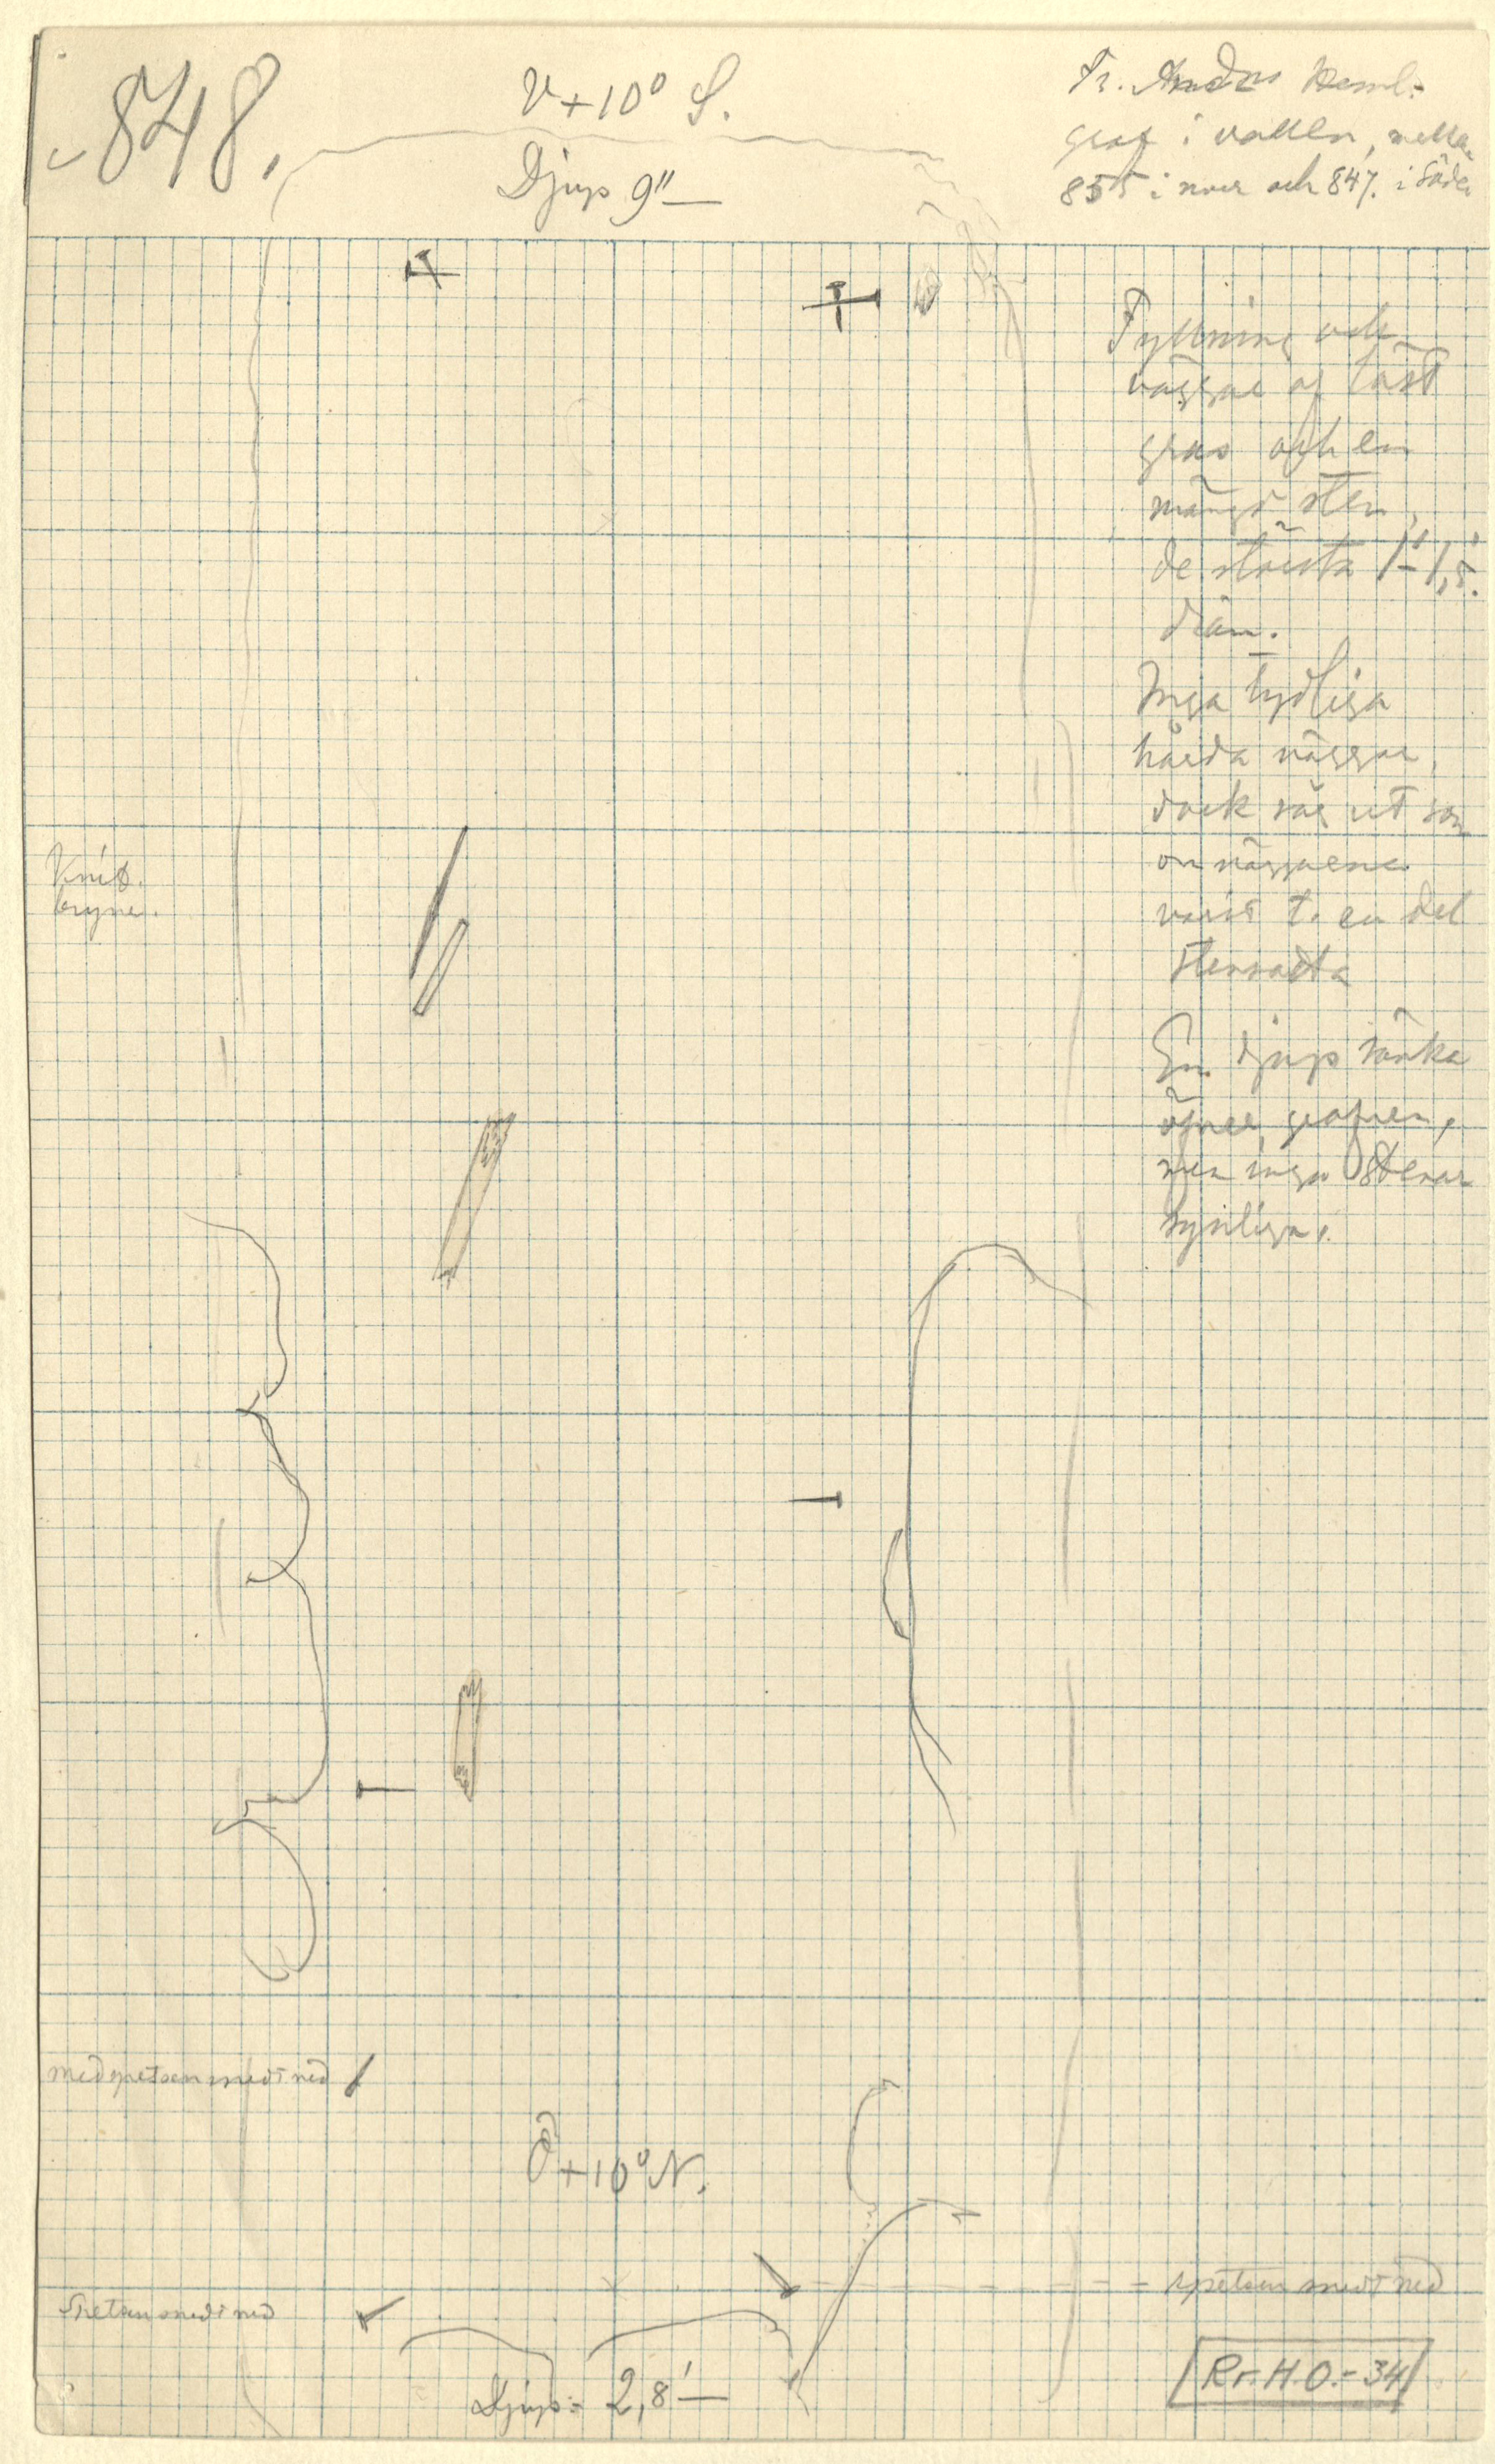 848.
V+10° S.
Djup 9"
Fr. Andrs Heml.
graf i vallen, mellan
855 i norr och 847. i söder
Fyllning och
väggar af löst
grus och en
mängd sten,
de största 1'-1,5'.
diam.
Inga tydliga
hårda väggar,
dock såg ut som
om väggarna
varit t. en del
stensatta
En djup sänka
öfver grafven,
men inga stenar
synliga.
Knif.
bryne.
med spetsen snedt ned
Ö+10° N.
spetsen snedt ned
Spetsen snedt ned
Djup = 2,8'
Rr. H.O. - 34